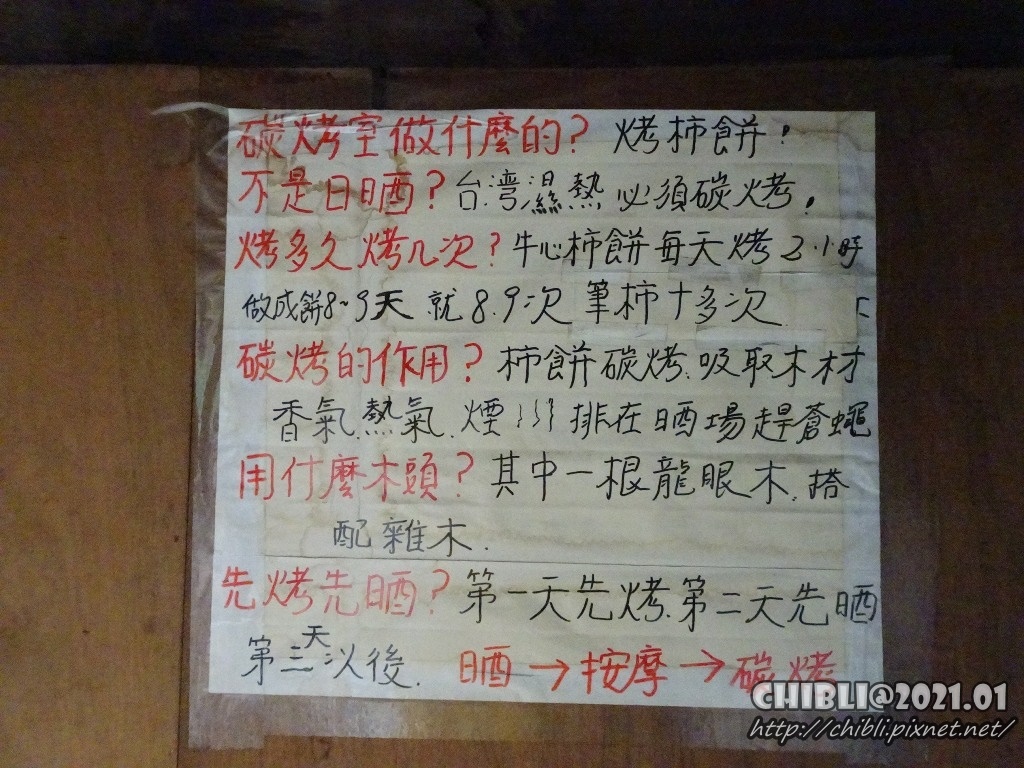 碳烤室做什麼的? 烤柿餅.
不是日晒? 台湾濕熱必須碳烤.
烤多久烤几次? 牛心柿餅每天烤2.小時
做成餅8~9天就8.9次 筆柿十多次
碳烤的作用? 柿餅碳烤.吸取木材
香氣.熱氣.煙 排在晒場趕蒼蠅
用什麼木頭? 其中一根龍眼木.搭
配雜木.
先烤先晒? 第一天先烤.第二天先晒
第三天以後. 晒→按摩→碳烤
CHIBLI@2021.01
http://chibli.pixnet.net/